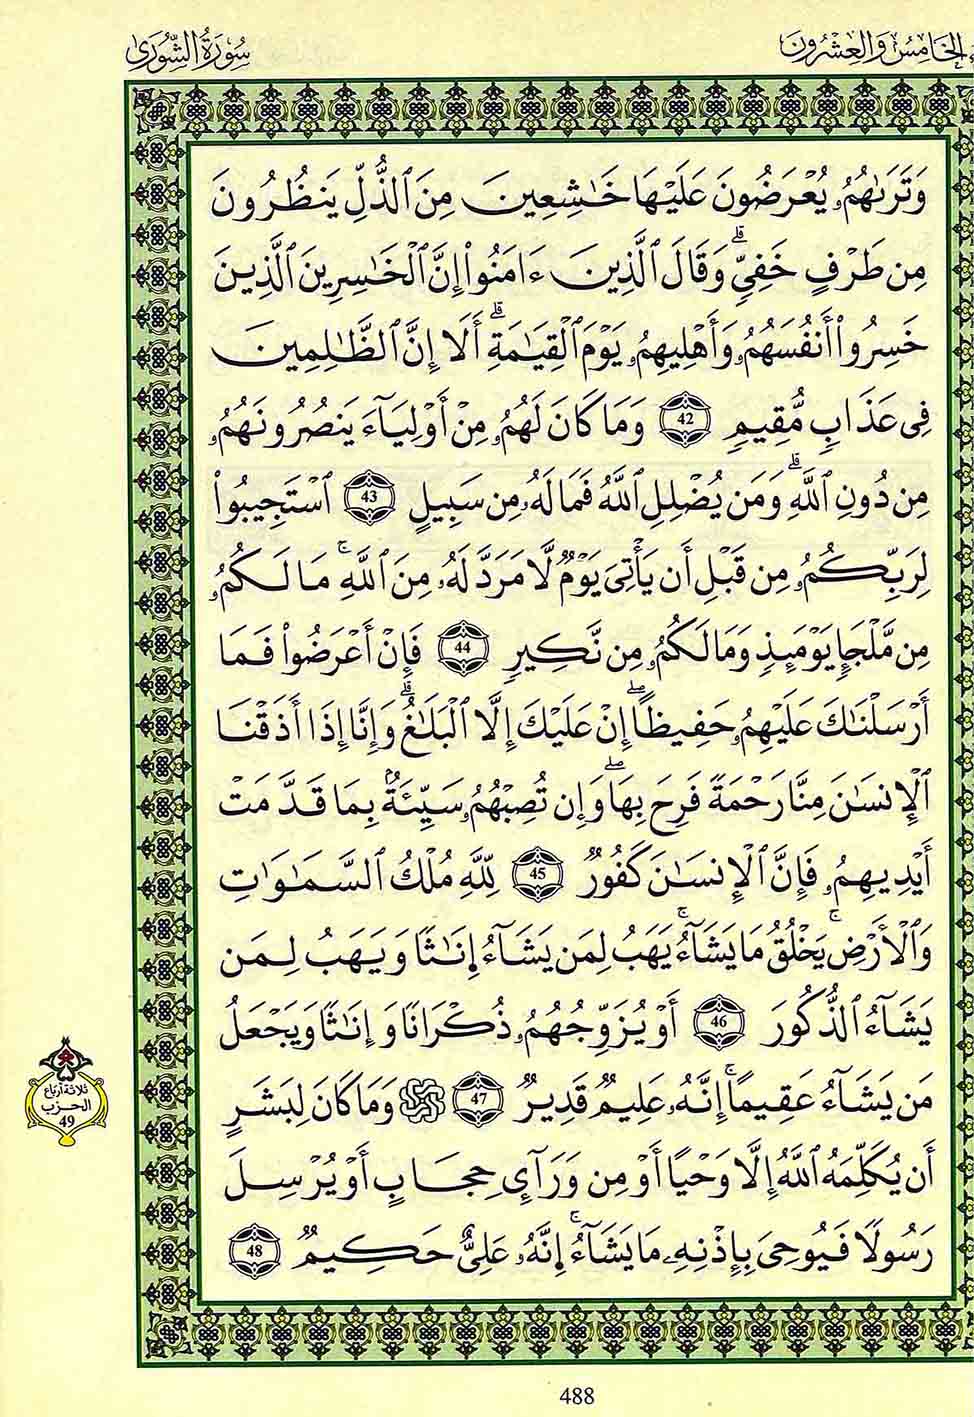 الخامس والعشرون
سورة الشورى
وَتَرَىٰهُمُۥ يُعْرَضُونَ عَلَيْهَا خَٰشِعِينَ مِنَ ٱلذُّلِّ يَنظُرُونَ
مِن طَرْفٍ خَفِيٍّۗ وَقَالَ ٱلَّذِينَ ءَامَنُوٓاْ إِنَّ ٱلْخَٰسِرِينَ ٱلَّذِينَ
خَسِرُوٓاْ أَنفُسَهُمُۥ وَأَهْلِيهِمُۥ يَوْمَ ٱلْقِيَٰمَةِۗ أَلَآ إِنَّ ٱلظَّٰلِمِينَ
فِى عَذَابٍ مُّقِيمٍ 42 وَمَا كَانَ لَهُمُۥ مِنْ أَوْلِيَآءَ يَنصُرُونَهُمُۥ
مِن دُونِ ٱللَّهِۗ وَمَن يُضْلِلِ ٱللَّهُ فَمَا لَهُۥ مِن سَبِيلٍ 43 ٱسْتَجِيبُواْ
لِرَبِّكُمُۥ مِن قَبْلِ أَن يَأْتِىَ يَوْمٌ لَّا مَرَدَّ لَهُۥ مِنَ ٱللَّهِۚ مَا لَكُمُۥ
مِن مَّلْجَإٍ يَوْمَئِذٍ وَمَا لَكُمُۥ مِن نَّكِيرٍ 44 فَإِنْ أَعْرَضُواْ فَمَآ
أَرْسَلْنَٰكَ عَلَيْهِمُۥ حَفِيظًاۖ إِنْ عَلَيْكَ إِلَّا ٱلْبَلَٰغُۗ وَإِنَّآ إِذَآ أَذَقْنَا
ٱلْإِنسَٰنَ مِنَّا رَحْمَةً فَرِحَ بِهَاۖ وَإِن تُصِبْهُمُۥ سَيِّئَةٌۢ بِمَا قَدَّمَتْ
أَيْدِيهِمُۥ فَإِنَّ ٱلْإِنسَٰنَ كَفُورٌ 45 لِّلَّهِ مُلْكُ ٱلسَّمَٰوَٰتِ
وَٱلْأَرْضِۚ يَخْلُقُ مَا يَشَآءُۚ يَهَبُ لِمَن يَشَآءُ إِنَٰثًا وَيَهَبُ لِمَن
يَشَآءُ ٱلذُّكُورَ 46 أَوْ يُزَوِّجُهُمُۥ ذُكْرَانًا وَإِنَٰثًا وَيَجْعَلُ
مَن يَشَآءُ عَقِيمًاۚ إِنَّهُۥ عَلِيمٌ قَدِيرٌ 47 وَمَا كَانَ لِبَشَرٍ
أَن يُكَلِّمَهُ ٱللَّهُ إِلَّا وَحْيًا أَوْ مِن وَرَآىِٕ حِجَابٍ أَوْ يُرْسِلَ
رَسُولًا فَيُوحِىَ بِإِذْنِهِۦ مَا يَشَآءُۚ إِنَّهُۥ عَلِىٌّ حَكِيمٌ 48
ثلاثة أرباع
الحزب
49
488